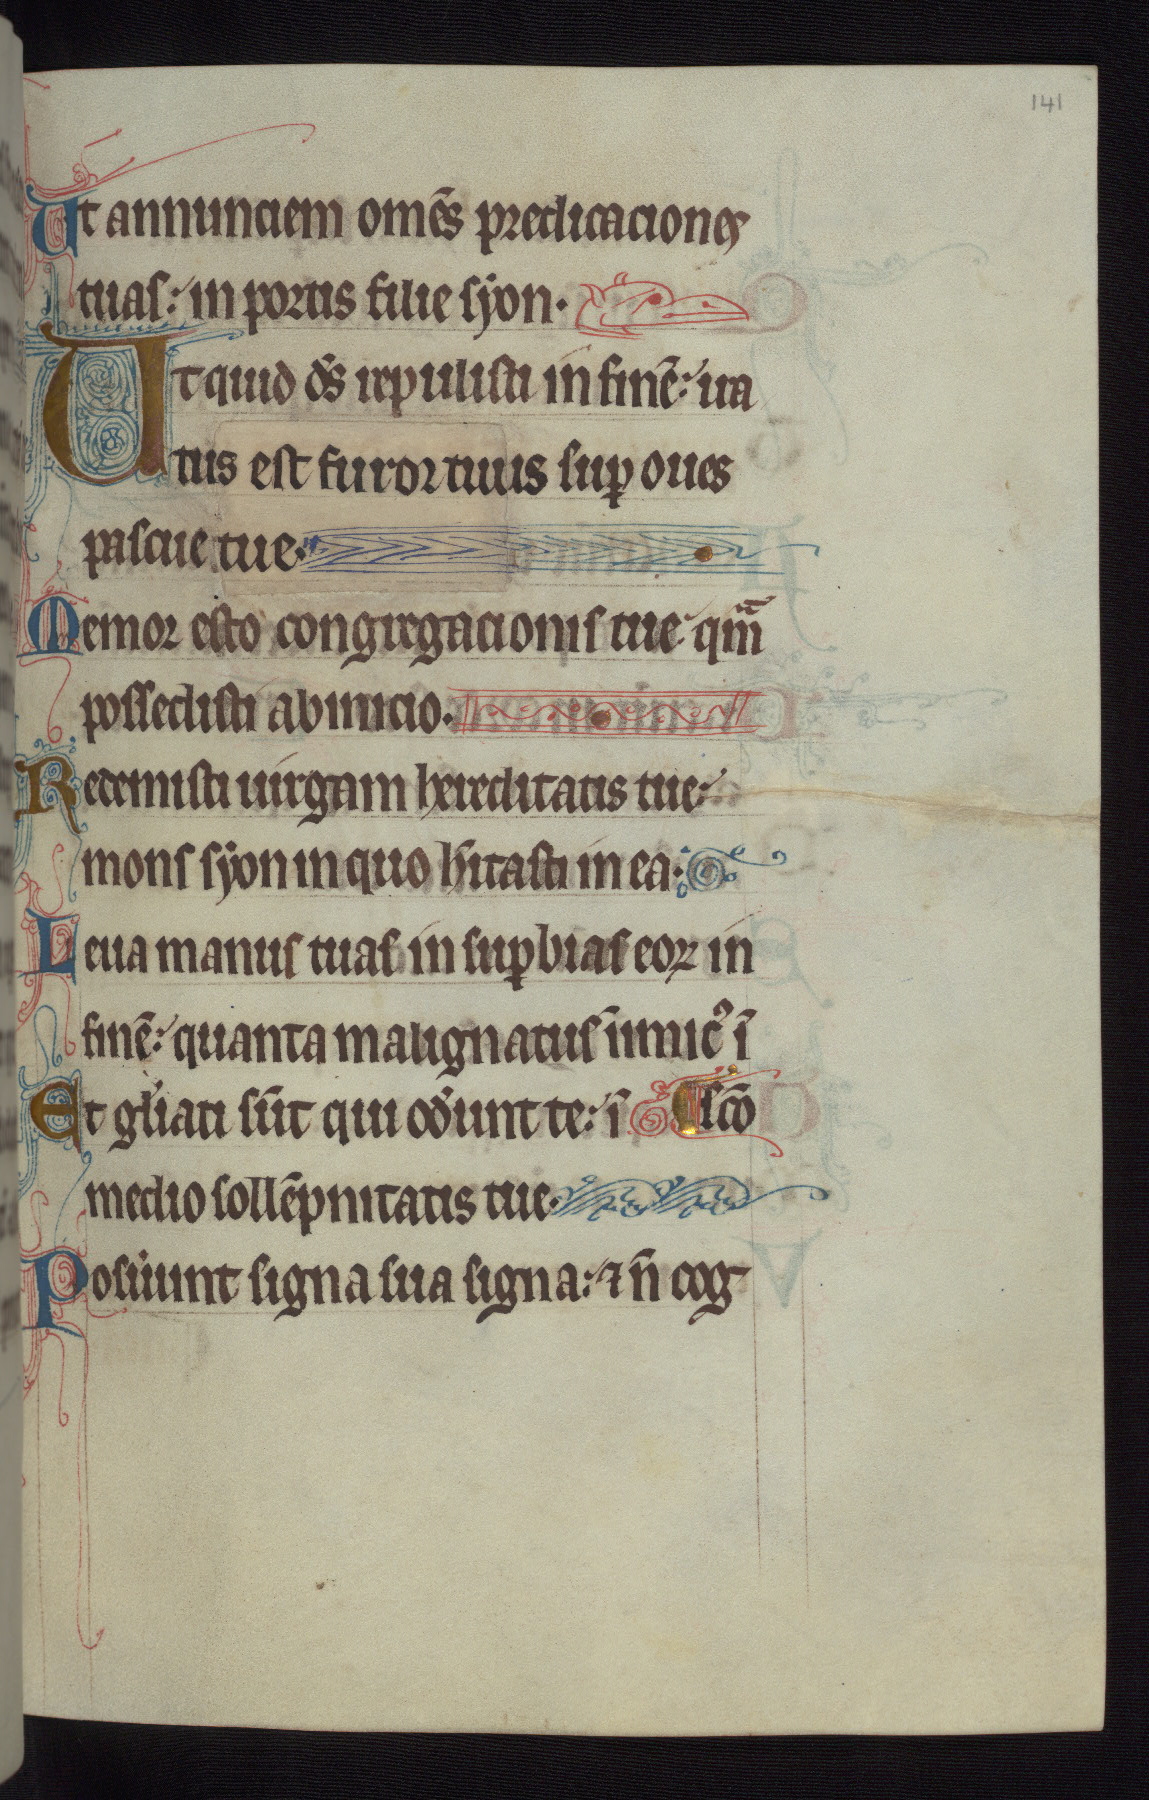 141
Ut annunciem om̄es predicaciones
tuas: in portis filie syon.
Ut quid ds̄ repulisti in finē: ira
tus est furor tuus suꝑ oues
pascue tue.
Memor esto congregacionis tue qm̄
possedisti ab inicio.
Redemisti uirgam hereditatis tue:
mons syon in quo hītasti in ea.
Leua manus tuas in suꝑbias eoꝝ in
finē: quanta malignatus īnimicꝰ ī
Et gl̄iati sūt qui od̄unt te: ī ⸿ sc̄o
medio sollēpnitatis tue.
Posūunt signa sua signa: ⁊ n̄ cog